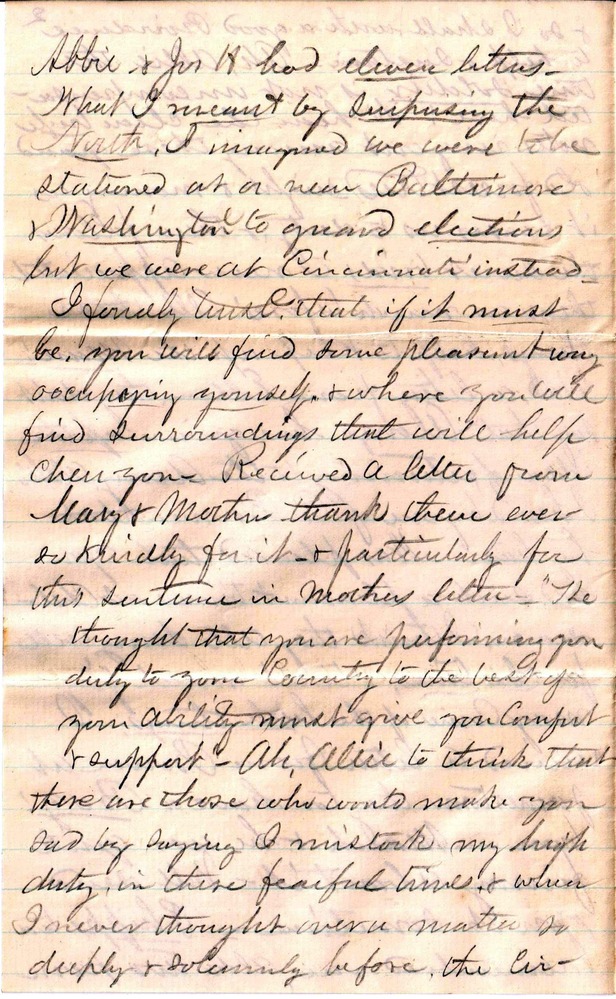 Abbie & Jos H had eleven letters -
What I meant by surprising the
North, I imagined we were to be
stationed at or near Baltimore
& Washington to guard elections
but we were at Cincinnati instead -
I fondly trust, that if it must
be, you will find some pleasant way
occupying yourself, & where you will
find surroundings that will help
cheer you - Received a letter from
Mary & Mother thank them ever
so kindly for it - & particularly for
this sentence in Mothers letter - "The
thought that you are performing your
duty to your Country to the best of
your ability must give you comfort
& support - Ah, Allie to think that
there are those who would make you
sad by saying I mistook my high
duty, in these fearful times, & when
I never thought over a matter so
deeply & solemnly before, the Cir-